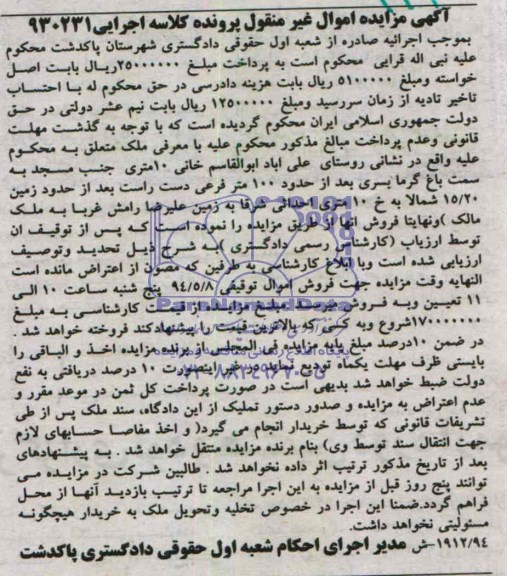 آگهی مزایده اموال غیر منقول پرونده کلاسه اجرایی۹۳۰۲۳۱
بموجب اجرائیه صادره از شعبه اول حقوقی دادگستری شهرستان پاکدشت محکوم
علیه نبی اله قرایی محکوم است به پرداخت مبلغ ۲۵۰۰۰۰۰۰ریال بابت اصل
خواسته ومبلغ ۵۱۰۰۰۰۰ ریال بابت هزینه دادرسی در حق محکوم له با احتساب
تاخیر تادیه از زمان سررسید ومبلغ ۱۲۵۰۰۰۰۰ ریال بابت نیم عشر دولتی در حق
دولت جمهوری اسلامی ایران محکوم گردیده است که با توجه به گذشت مهلت
قانونی وعدم پرداخت مبالغ مذکور محکوم علیه با معرفی ملک متعلق به محکوم
علیه واقع در نشانی روستای علی اباد ابوالقاسم خانی ۱۰متری جنب مسجد به
سمت باغ گرما بسری بعد از حدود ۱۰۰ متر فرعی دست راست بعد از حدود زمین
۱۵/۲۰ شمالا به خ ۱۰ متری احداثی شرقا به زمین علیرضا رامش غربا به ملک
مالک )ونهایتا فروش انها از طریق مزایده را نموده است که پس از توقیف ان
توسط ارزیاب (کارشناس رسمی دادگستری )به شرح ذیل تحدید وتوصیف
ارزیابی شده است وبا ابلاغ کارشناسی به طرفین که مصون از اعتراض مانده است
النهایه وقت مزایده جهت فروش اموال توقیفی ۹۴/۵/۸ پنج شنبه ساعت ۱۰ الی
۱۱ تعیین وبه فروش میرسد. مبلغ مزایده از قیمت کارشناسی به مبلغ
۱۷۰۰۰۰۰۰۰شروع وبه کسی که بالاترین قیمت را پیشنهادکند فروخته خواهد شد .
در ضمن ۱۰درصد مبلغ پایه مزایده فی المجلس از برنده مزایده اخذ و الباقی را
بایستی ظرف مهلت یکماه تودیع نماید در غیر اینصورت ۱۰ درصد دریافتی به نفع
دولت ضبط خواهد شد بدیهی است در صورت پرداخت کل ثمن در موعد مقرر و
عدم اعتراض به مزایده و صدور دستور تملیک از این دادگاه، سند ملک پس از طی
تشریفات قانونی که توسط خریدار انجام می گیرد( و اخذ مفاصا حسابهای لازم
جهت انتقال سند توسط وی) بنام برنده مزایده منتقل خواهد شد . به پیشنهادهای
بعد از تاریخ مذکور ترتیب اثر داده نخواهد شد . طالبین شرکت در مزایده می
توانند پنج روز قبل از مزایده به این اجرا مراجعه تا ترتیب بازدید آنها از محل
فراهم گردد.ضمنا این اجرا در خصوص تخلیه وتحویل ملک به خریدار هیچگونه
مسئولیتی نخواهد داشت.
۱۹۱۲/۹۴-ش مدیر اجرای احکام شعبه اول حقوقی دادگستری پاکدشت